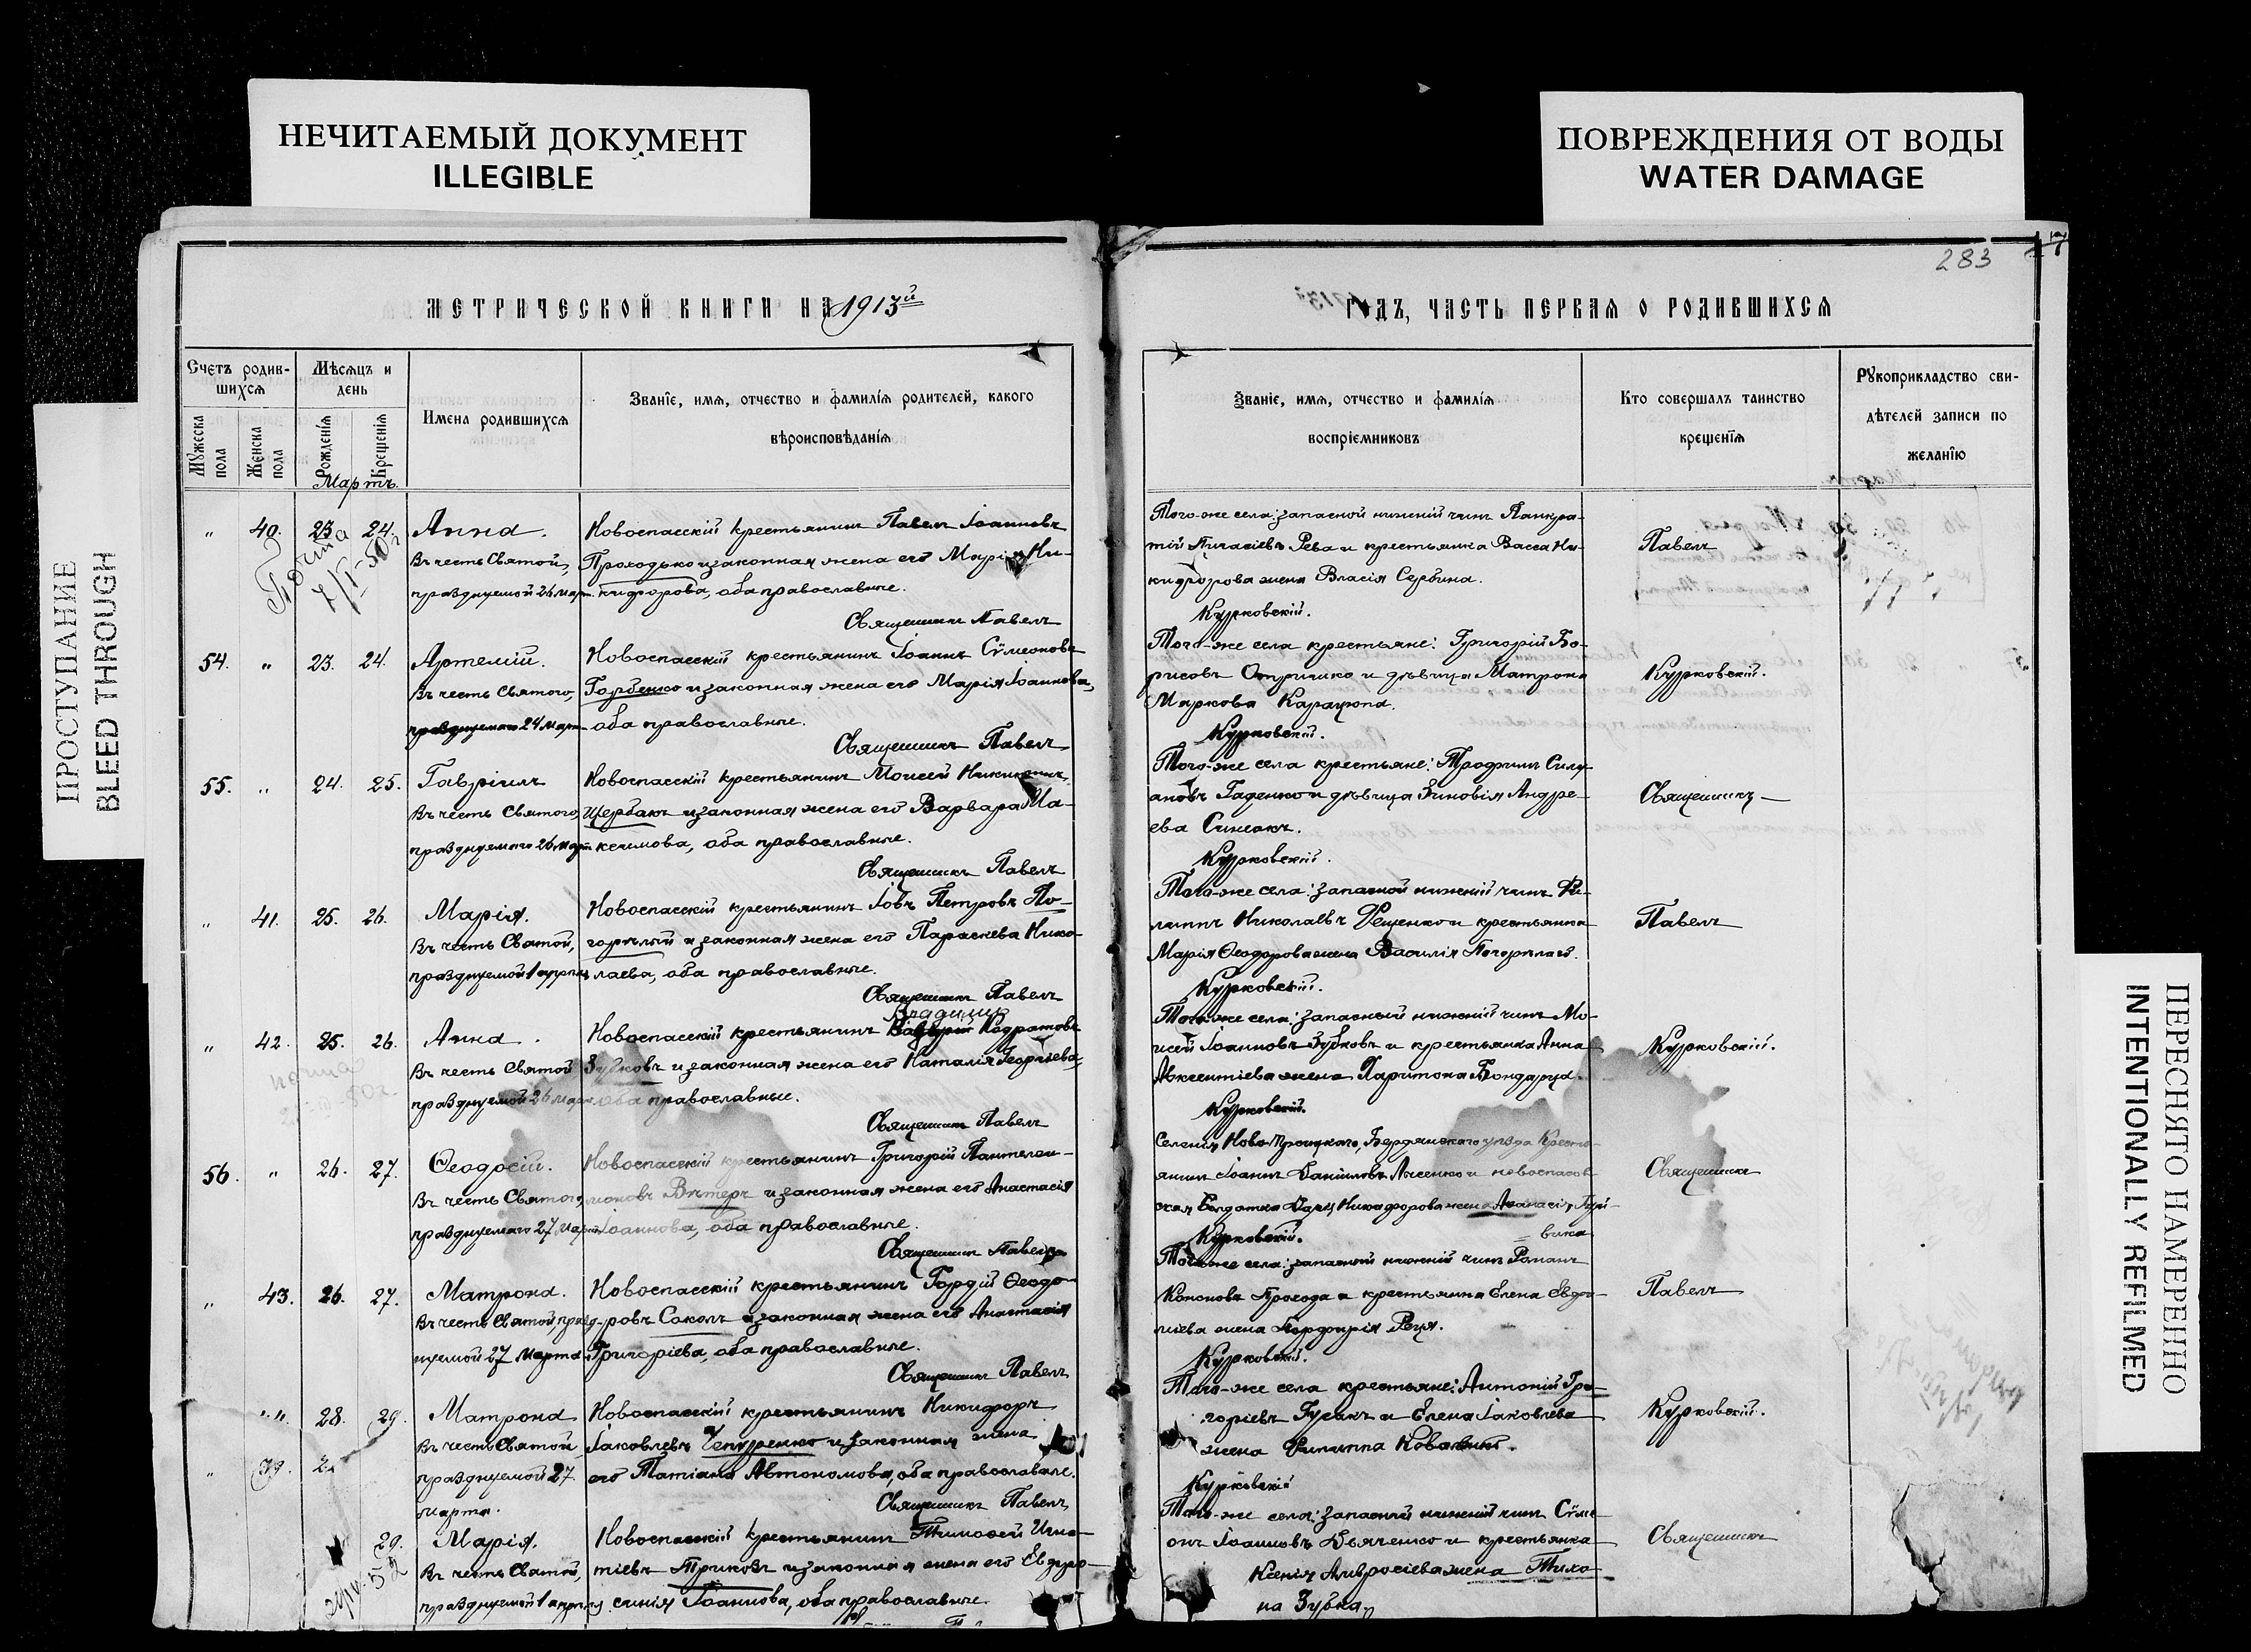 НЕЧИТАЕМЫЙ ДОКУМЕНТ
ILLEGIBLE
ПОВРЕЖДЕНИЯ ОТ ВОДЫ
WATER DAMAGE
ПРОСТУПАНИЕ
BLEED THROUGH
ПЕРЕСНЯТО НАМЕРЕННО
INTENTIONALLY REFILMED
283
МЕТРИЧЕСКОЙ КНИГИ НА 1913й
Счетъ родив-
шихся
Мѣсяцъ и
день
Мужеска
пола
Женска
пола
Рожденія
Крещенія
Имена родившихся
Званіе, имя, отчество и фамилія родителей, какого
вѣроисповѣданія
Мартъ
" 40. 23 24. Анна. Новоспасскій крестьянинъ Павелъ Іоанновъ
Въ честь Святой, Проходько и законная жена его Марія Ни-
празднуемой 26 март. кифорова, оба православные.
Священникъ Павелъ
54. " 23. 24. Артемій. Новоспасскій крестьянинъ Іоаннъ Сѵмеоновъ
Въ честь Святого, Горбенко и законная жена его Марія Іоаннова,
празднуемого 24 март. оба православные.
Священникъ Павелъ
55. " 24. 25. Гавріилъ Новоспасскій крестьянинъ Моисей
Въ честь Святого, Щербакъ и законная жена его Варвара Ма-
празднуемого 26 март. ксимова, оба православные.
Священникъ Павелъ
" 41. 25. 26. Марія. Новоспасскій крестьянинъ Іовъ Петровъ По-
Въ честь Святой, горѣлый и законная жена его Параскева Нико-
празднуемой 1 апрѣля лаева, оба православные.
Священникъ Павелъ
Владиміръ
" 42. 25. 26. Анна. Новоспасскій крестьянинъ Кодратовъ
Въ честь Святой Зубковъ и законная жена его Наталія Георгіева,
празднуемой 26 март. оба православные.
Священникъ Павелъ
56. " 26. 27. Ѳеодосій. Новоспасскій крестьянинъ Григорій Пантелеи-
Въ честь Святого, моновъ Вѣтеръ и законная жена его Анастасія
празднуемого 27 март. Іоаннова, оба православные.
Священникъ Павелъ
" 43. 26. 27. Матрона. Новоспасскій крестьянинъ Гордій Ѳеодо-
Въ честь Святой, празд- ровъ Соколъ и законная жена его Анастасія
нуемой 27 марта Григоріева, оба православные.
Священникъ Павелъ
28. 29. Матрона Новоспасскій крестьянинъ Никифоръ
Въ честь Святой Іаковлевъ Чепуренко и законная жена
празднуемой 27 его Татіана Автономова, оба православные.
марта. Священникъ Павелъ
29. Марія. Новоспасскій крестьянинъ Тимоѳей Игна-
Въ честь Святой, тіевъ и законная жена его Евдро-
празднуемой 1 апрѣля синія Іоаннова, оба православные.
ГОДЪ, ЧАСТЬ ПЕРВАЯ О РОДИВШИХСЯ
Званіе, имя, отчество и фамилія
воспріемниковъ
Кто совершалъ таинство
крещенія
Рукоприкладство сви-
дѣтелей записи по
желанію
Того-же села: запасной нижній чинъ Панкра-
тій Рева и крестьянка Васса Ни-
кифорова жена Власія Сербина.
Павелъ
Курковскій.
Того-же села крестьяне: Григорій Бо-
рисовъ и дѣвица Матрона
Маркова
Курковскій.
Курковскій.
Того-же села крестьяне: Трофимъ Силу-
ановъ Гаденко и дѣвица Зиновія Андре-
ева
Священникъ
Курковскій.
Того-же села: запасной нижній чинъ Фи-
липпъ Николаевъ Рещенко и крестьянка
Марія Ѳеодорова жена Василія Погорѣлаго.
Павелъ
Курковскій.
Того-же села: запасный нижній чинъ Мо-
исей Іоанновъ Зубковъ и крестьянка Анна
Авксентіева жена Харитона Бондаря.
Курковскій.
Курковскій.
Селенія Ново-Троицкаго, Бердянскаго уѣзда крестья-
нинъ Іоаннъ Даніиловъ Лысенко и новоспасов-
ская солдатка Никифорова жена
Священникъ
Курковскій.
Того-же села: запасной нижній чинъ Романъ
Кононовъ Прохода и крестьянка Елена
жена Порфирія
Павелъ
Курковскій.
Того-же села крестьяне: Антоній Гри-
горіевъ Гусакъ и Елена Іаковлева
жена Филиппа
Курковскій.
Курковскій
Того-же села: запасный нижній чинъ Сѵме-
онъ Іоанновъ Дьяченко и крестьянка
Ксенія Амвросіева жена Тихо-
на Зубка.
Священникъ